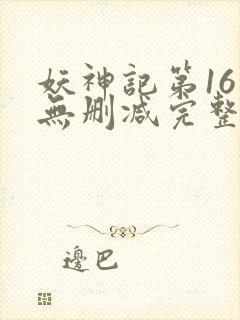 妖神記第16
無刪減完整
邊巴